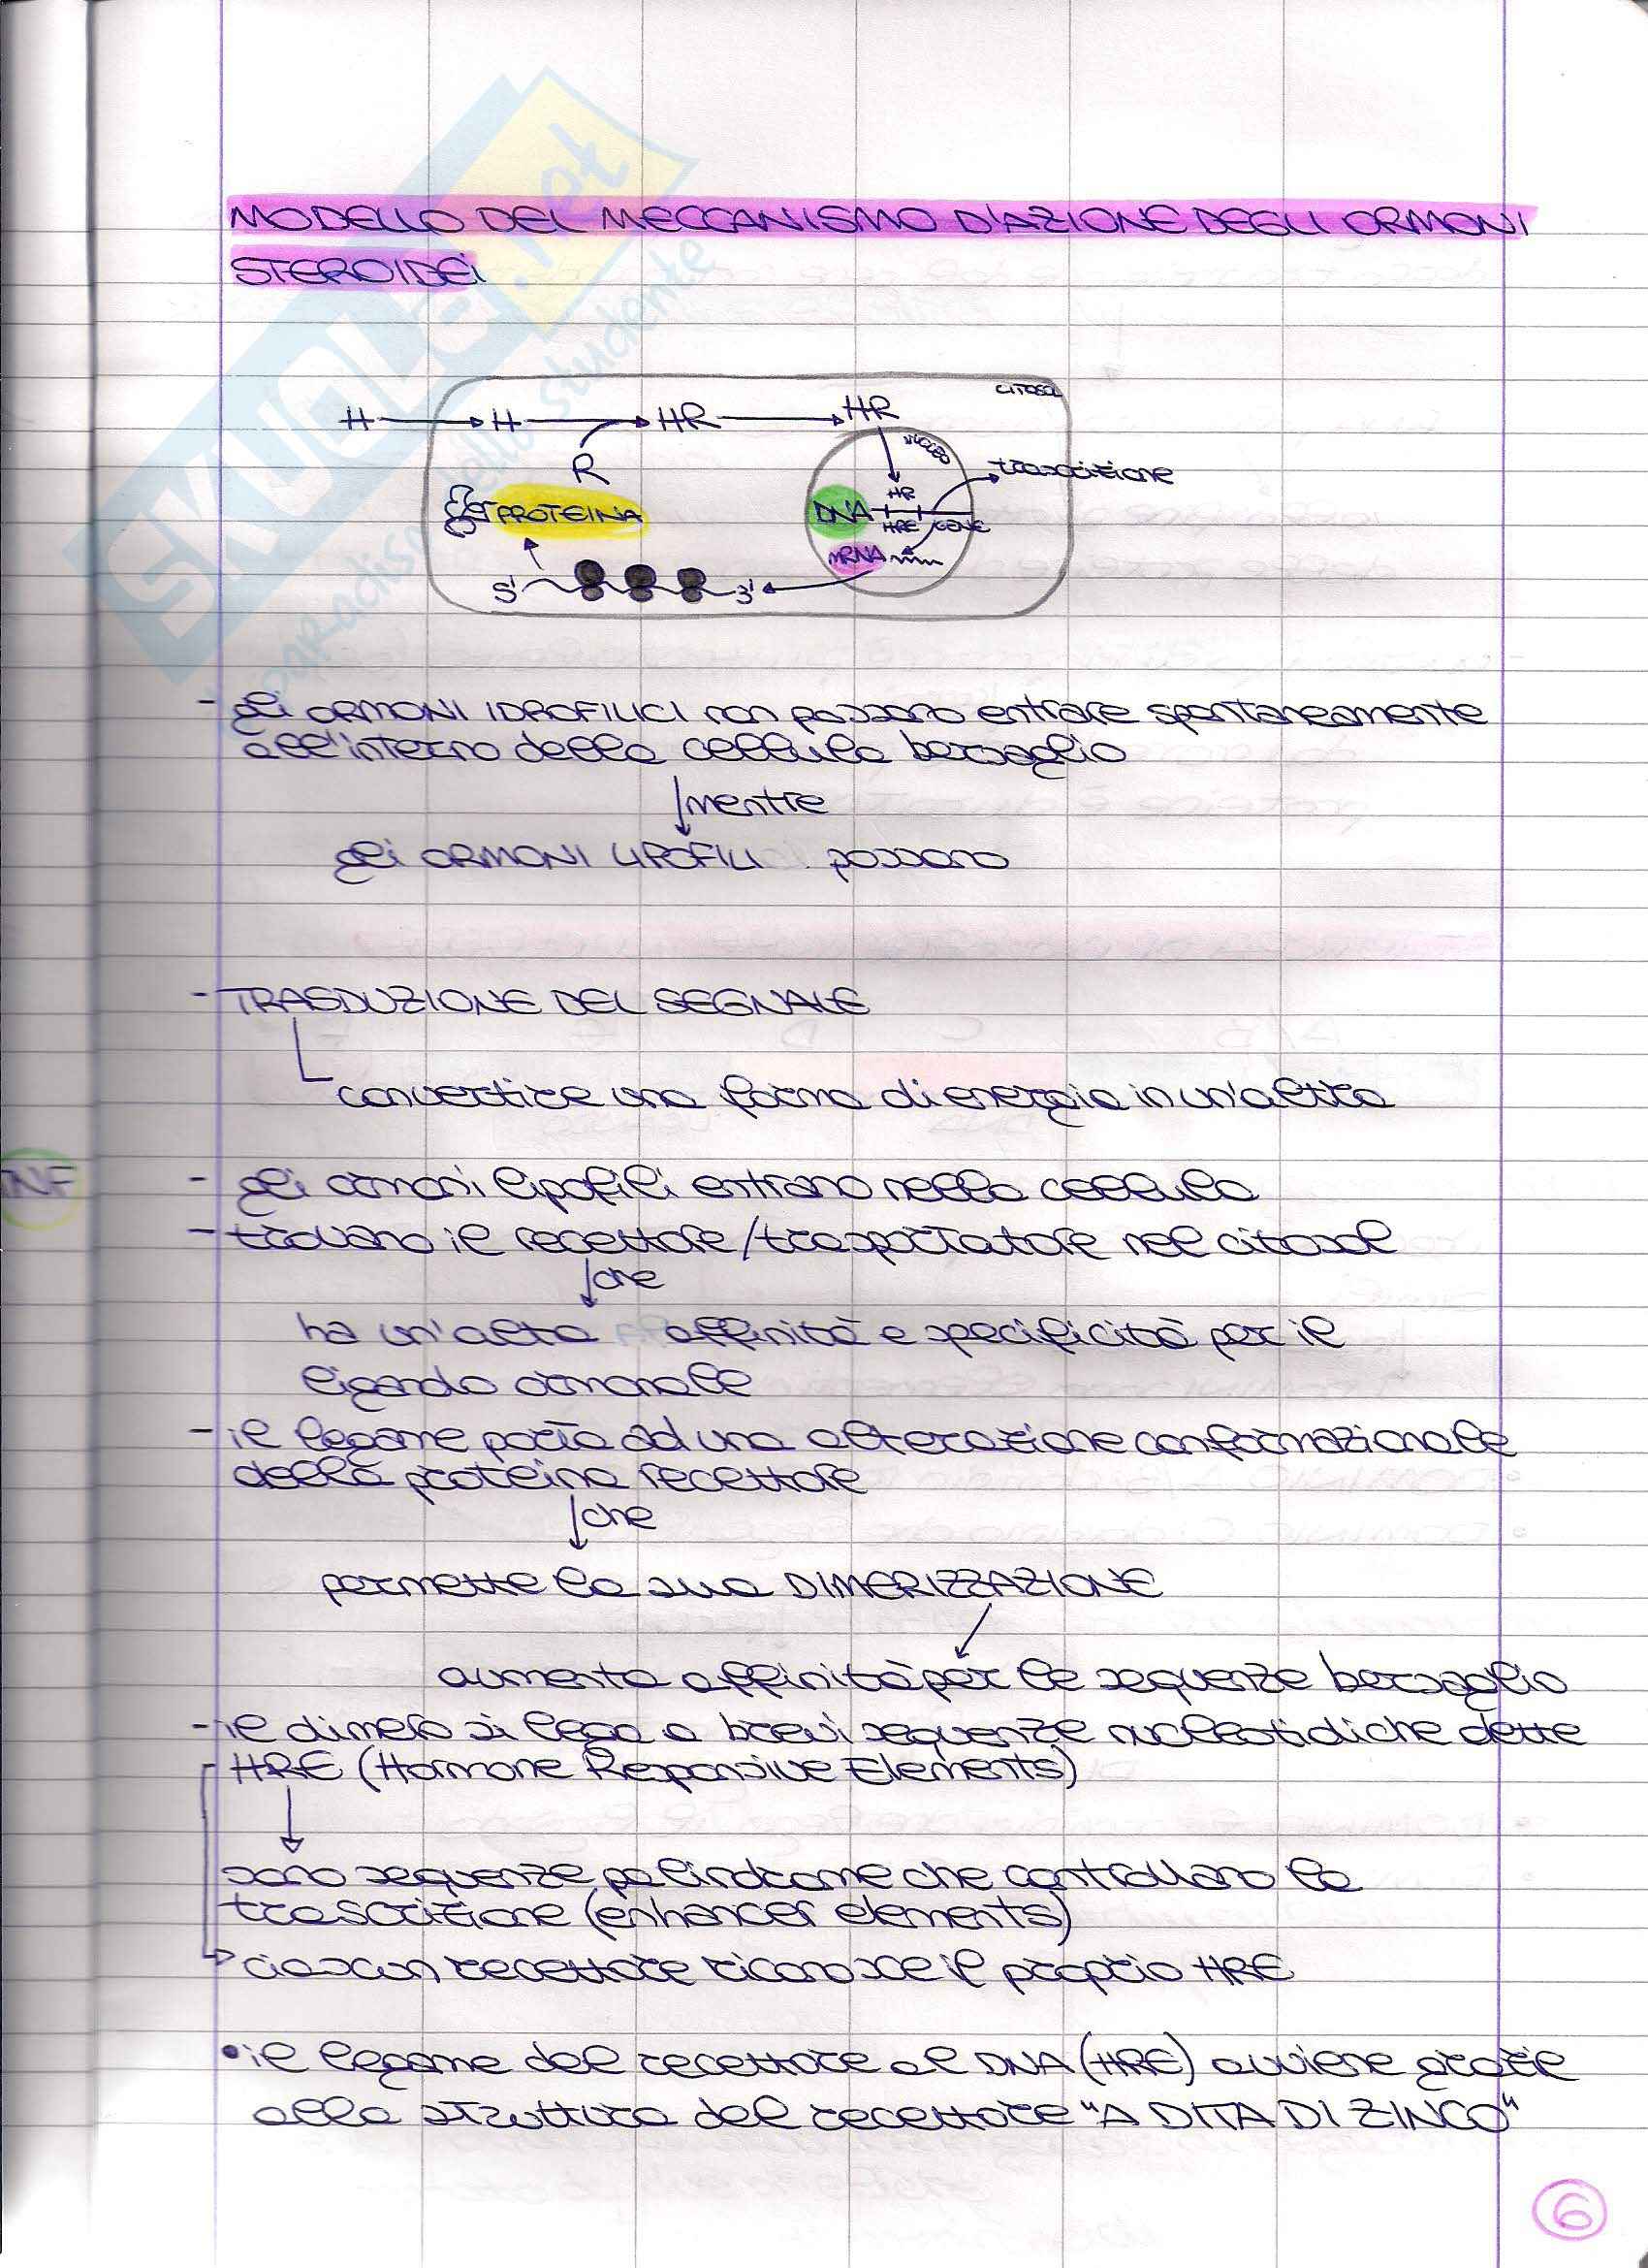 MODELLO DEL MECCANISMO D'AZIONE DEGLI ORMONI
STEROIDEI
SKUOLA.net
il paradiso dello studente
CITOSOL
H H HR HR
R
NUCLEO
trascrizione
HR
PROTEINA
DNA
HRE GENE
mRNA
5' 3'
- gli ORMONI IDROFILICI non possono entrare spontaneamente
all'interno della cellula bersaglio
mentre
gli ORMONI LIPOFILI possono
- TRASDUZIONE DEL SEGNALE
convertire una forma di energia in un'altra
INF
- gli ormoni lipofili entrano nella cellula
- trovano il recettore/trasportatore nel citosol
che
ha un'alta affinità e specificità per il
ligando ormonale
- il legame porta ad una alterazione conformazionale
della proteina recettore
che
permette la sua DIMERIZZAZIONE
aumenta affinità per le sequenze bersaglio
- il dimero si lega a brevi sequenze nucleotidiche dette
HRE (Hormone Responsive Elements)
sono sequenze palindrome che controllano la
trascrizione (enhancer elements)
ciascun recettore riconosce il proprio HRE
• il legame del recettore al DNA (HRE) avviene grazie
alla struttura del recettore "A DITA DI ZINCO"
6